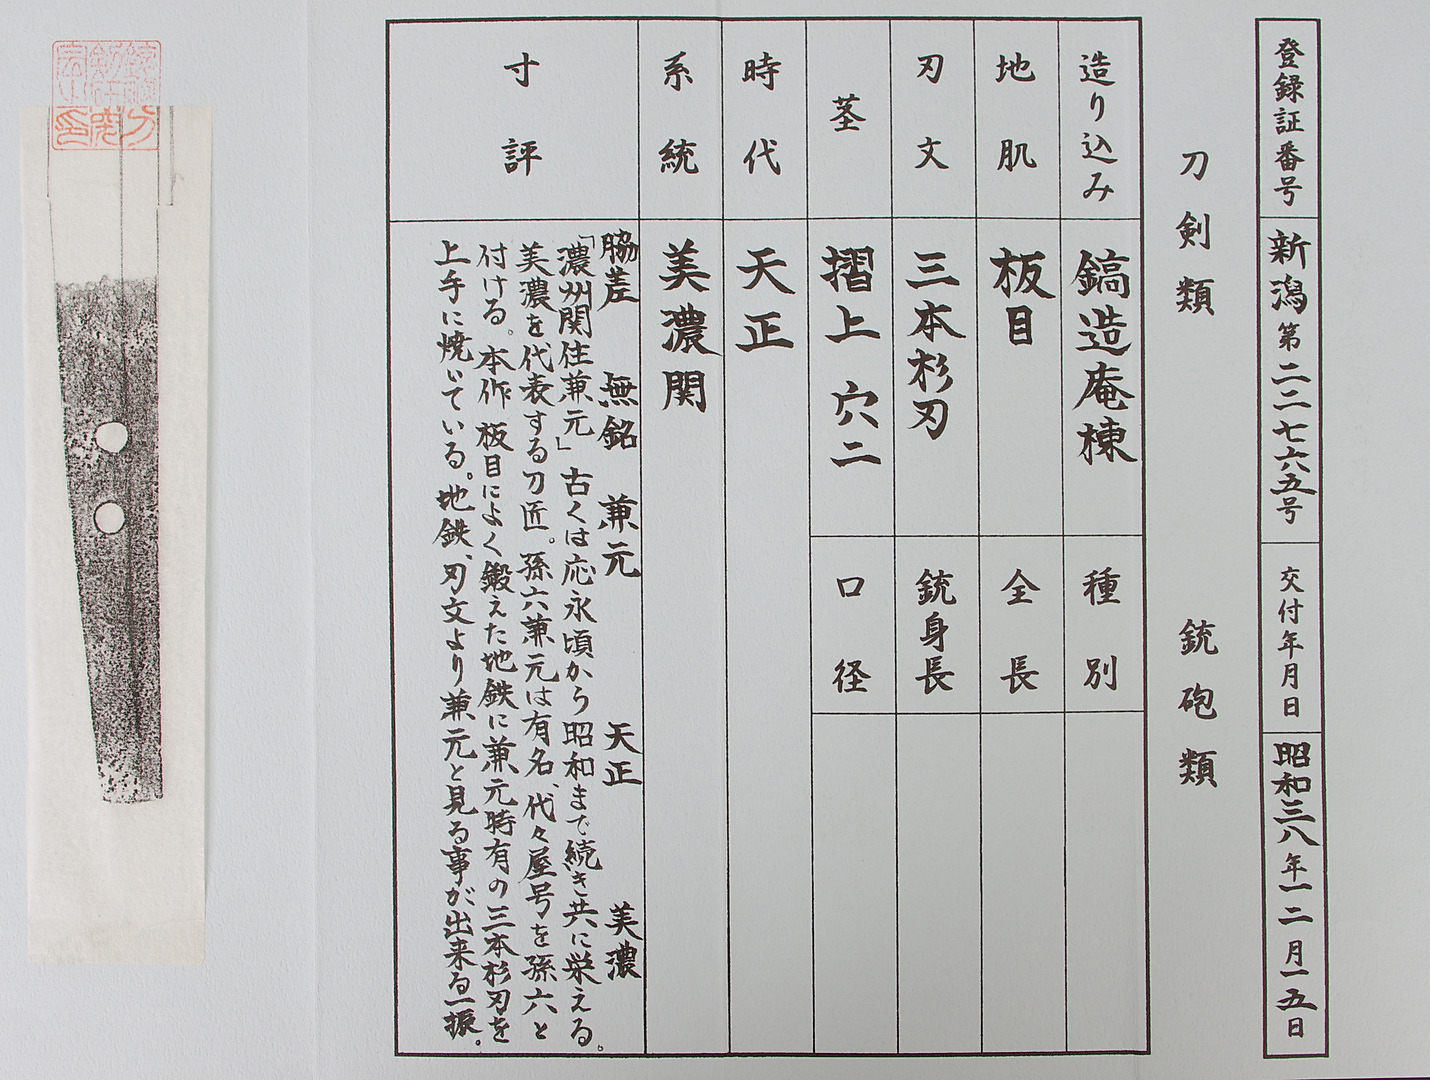 登録証番号 新潟第二二七六五号 交付年月日 昭和三八年一二月一五日
刀剣類 銃砲類
造り込み 鎬造庵棟 種別
地肌 板目 全長
刃文 三本杉刃 銃身長
茎 摺上 穴二 口径
時代 天正
系統 美濃関
寸評
脇差 無銘 兼元 天正 美濃
「濃州関住兼元」古くは応永頃から昭和まで続き共に栄える。
美濃を代表する刀匠。孫六兼元は有名、代々屋号を孫六と
付ける。本作板目によく鍛えた地鉄に兼元特有の三本杉刃を
上手に焼いている。地鉄、刃文より兼元と見る事が出来る一振。